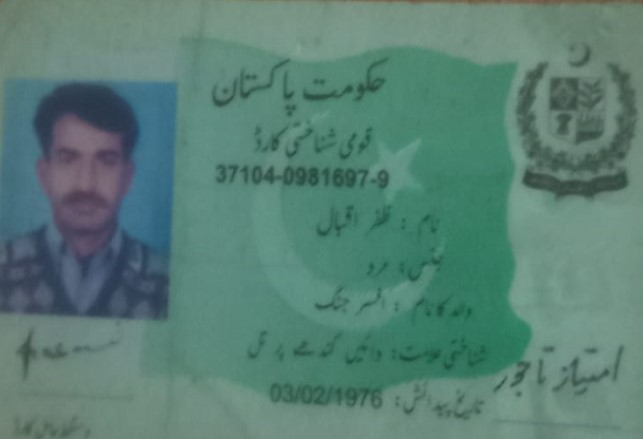 حکومت پاکستان
قومی شناختی کارڈ
37104-0981697-9
نام : ظفر اقبال
جنس: مرد
والد کا نام : افسر جنگ
شناختی علامت: دائیں کندھے پر تل
تاریخ پیدائش: 03/02/1976
امتیاز تاجور
دستخط حامل کارڈ